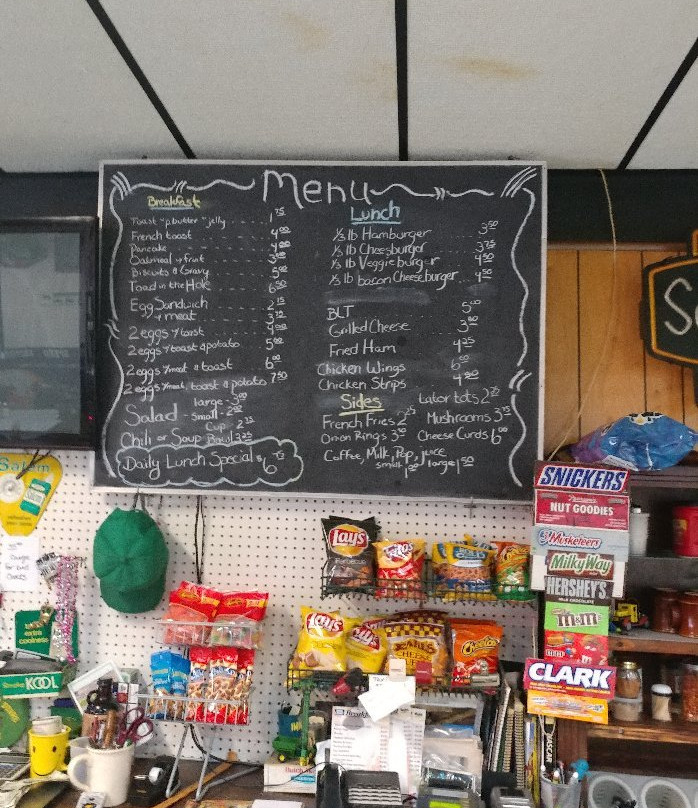 Menu
Breakfast
Toast "p.butter" jelly 1.75
French toast 4.00
Pancake 4.00
Oatmeal & fruit
Biscuits & Gravy 5.00
Toad in the Hole 6.50
Egg Sandwich 2.75
& meat 3.75
2 eggs & toast 4.00
2 eggs & toast & potato 5.00
2 eggs & meat & toast 6.00
2 eggs & meat, toast & potato 7.50
Salad large - 3.00
small - 2.00
Chili or Soup Cup 2.25
Bowl 3.25
Daily Lunch Special $6.75
Lunch
1/3 lb Hamburger 3.50
1/3 lb Cheesburger 3.75
1/3 lb Veggie burger 4.50
1/3 lb bacon Cheeseburger 4.50
BLT 5.00
Grilled Cheese
Fried Ham 4.25
Chicken Wings 6.00
Chicken Strips
Sides
French Fries 2.75
Tator tots 2.75
Onion Rings 3.50
Mushrooms 3.75
Cheese Curds 6.00
Coffee, Milk, Pop, juice
small 1.00 large 1.50
Salem
extra
coolness
KOOL
Lay's
Barbecue
Fritos
Lay's
Cheetos
SNICKERS
NUT GOODIES
3 Musketeers
MilkyWay
HERSHEY'S
MILK CHOCOLATE
m&m's
CLARK